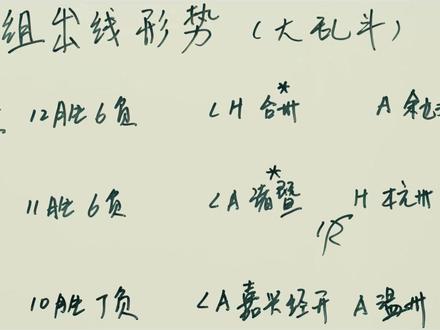 组出线形势（大乱斗）
12胜6负 LH 台州* A 余
11胜6负 LA 诸暨* H 杭州
10胜7负 LA 嘉兴经开 A 温州